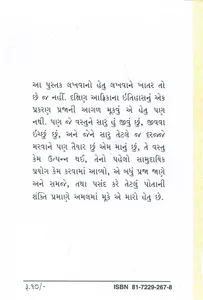 આ પુસ્તક લખવાનો હેતુ લખવાને ખાતર તો
છે જ નહીં. દક્ષિણ આફ્રિકાના ઇતિહાસનું એક
પ્રકરણ પ્રજાની આગળ મૂકવું એ હેતુ પણ
નથી. પણ જે વસ્તુને સારુ હું જીવું છું, જીવવા
ઇચ્છું છું, અને જેને સારુ તેટલે જ દરજ્જે
મરવાને પણ તૈયાર છું એમ માનું છું, તે વસ્તુ
કેમ ઉત્પન્ન થઈ, તેનો પહેલો સામુદાયિક
પ્રયોગ કેમ કરવામાં આવ્યો, એ બધું પ્રજા જાણે
અને સમજે, તથા પસંદ કરે તેટલું પોતાની
શક્તિ પ્રમાણે અમલમાં મૂકે એ મારો હેતુ છે.
રૂ.૧૦/-
ISBN 81-7229-267-8